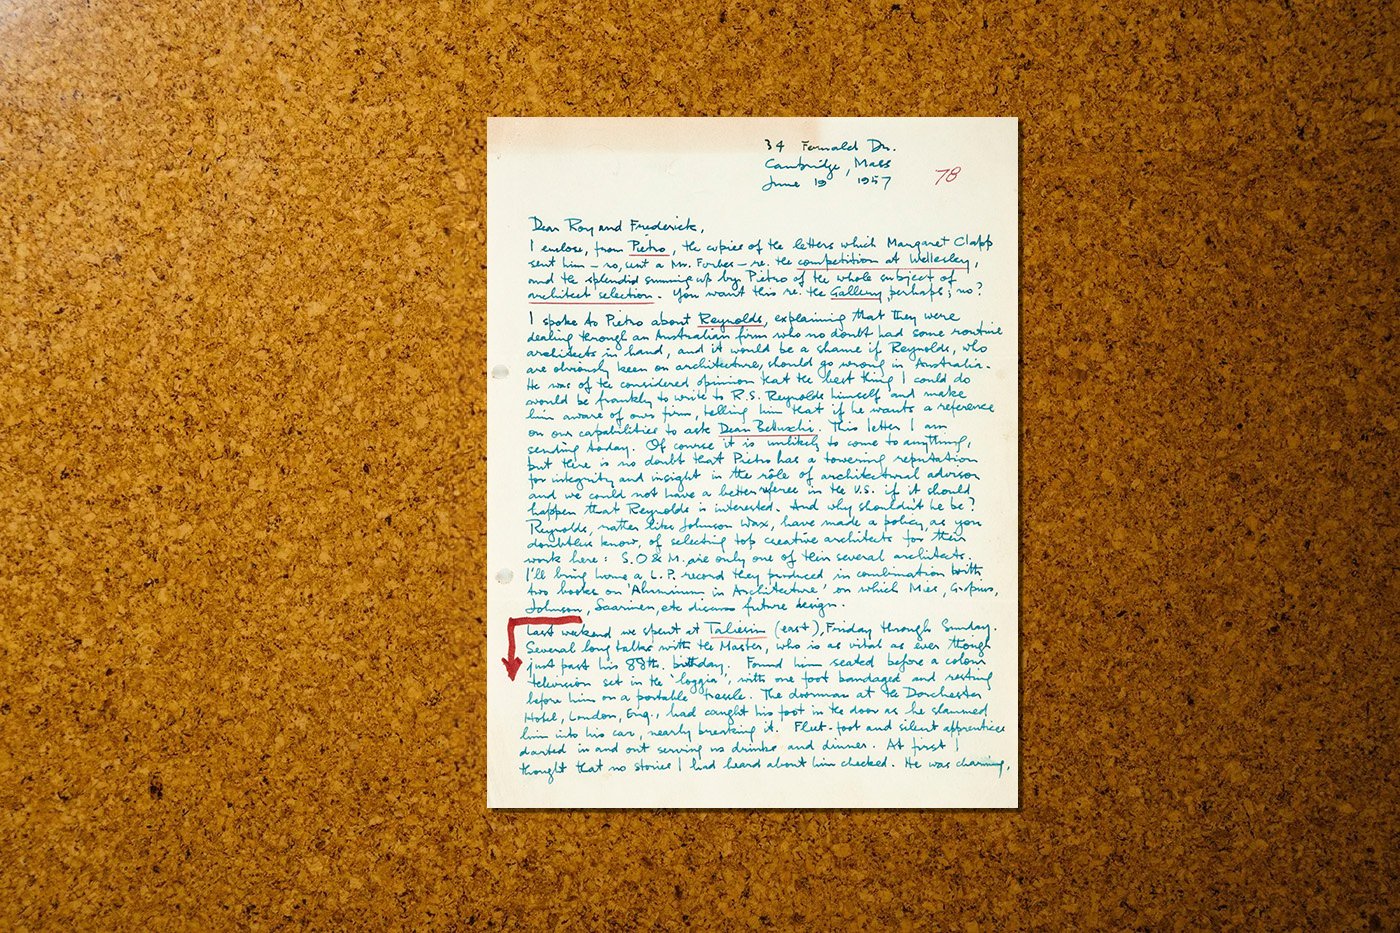 34 Fernald Dr.
Cambridge, Mass
June 19 1957
78
Dear Roy and Frederick,
I enclose, from Pietro, the copies of the letters which Margaret Clapp
sent him – so, sent a Mr. Forbes – re. the competition at Wellesley,
and the splendid summing up by Pietro of the whole subject of
architect selection. You want this re. the Gallery, perhaps; no?
I spoke to Pietro about Reynolds, explaining that they were
dealing through an Australian firm who no doubt had some routine
architects in hand, and it would be a shame if Reynolds, who
are obviously keen on architecture, should go wrong in Australia.
He was of the considered opinion that the best thing I could do
would be frankly to write to R.S. Reynolds himself and make
him aware of our firm, telling him that if he wants a reference
on our capabilities to ask Dean Belluschi. This letter I am
sending today. Of course it is unlikely to come to anything,
but there is no doubt that Pietro has a towering reputation
for integrity and insight in the rôle of architectural advisor
and we could not have a better referee in the U.S. if it should
happen that Reynolds is interested. And why shouldn't he be?
Reynolds, rather like Johnson Wax, have made a policy, as you
doubtless know, of selecting top creative architects for their
work here: S.O & M. are only one of their several architects.
I'll bring home a L.P. record they produced in combination with
two books on 'Aluminum in Architecture' on which Mies, Gropius,
Johnson, Saarinen, etc discuss future design.
Last weekend we spent at Taliesin (east), Friday through Sunday.
Several long talks with the Master, who is as vital as ever though
just past his 88th. birthday. Found him seated before a color
television set in the 'loggia', with one foot bandaged and resting
before him on a portable trestle. The doorman at the Dorchester
Hotel, London, Eng., had caught his foot in the door as he slammed
him into his car, nearly breaking it. Fleet-foot and silent apprentices
darted in and out serving us drinks and dinner. At first I
thought that no stories I had heard about him checked. He was charming,